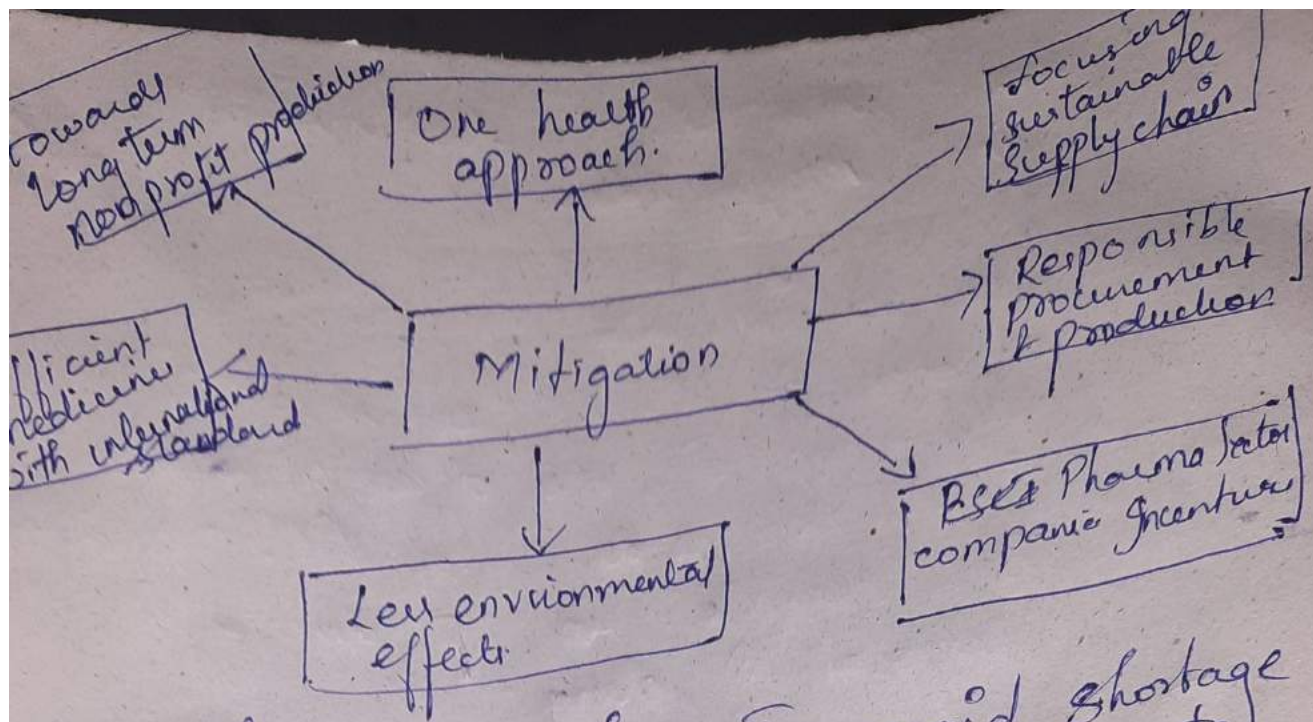 Towards
long term
non profit production
One health
approach.
Focusing
sustainable
supply chain
Responsible
procurement
& production
Mitigation
fficient
medicine
with international
standard
Pharma Sector
companie Incentive
Less envrionmental
effects.
shortage